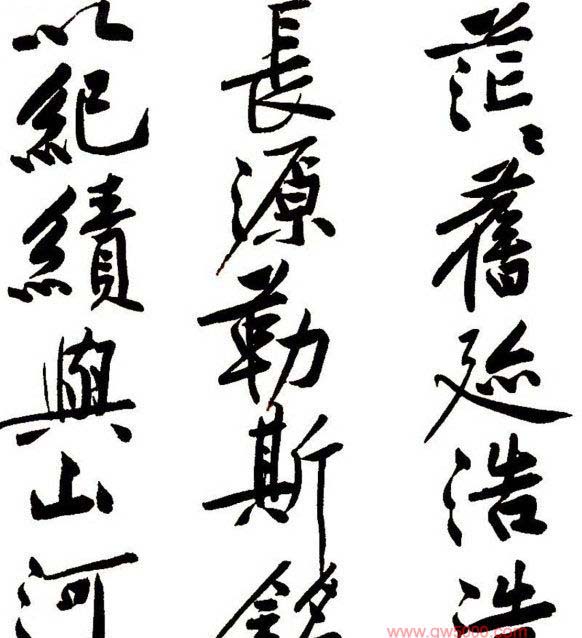 茫〻舊迹浩浩
長源勒斯銘
以紀績與山河
www.qw5000.com